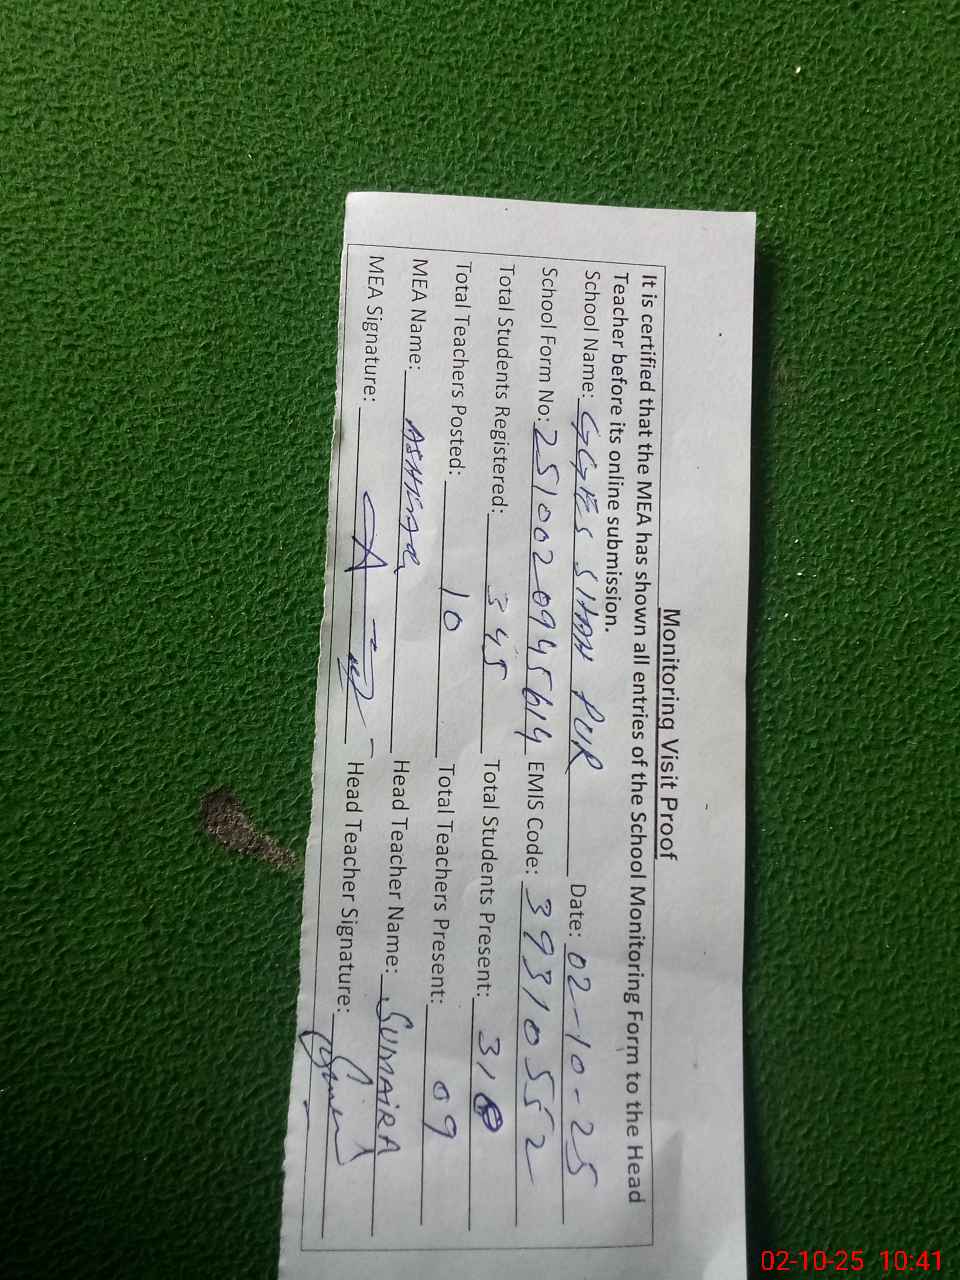 Monitoring Visit Proof
It is certified that the MEA has shown all entries of the School Monitoring Form to the Head
Teacher before its online submission.
School Name: GGHES SIHAN PUR Date: 02-10-25
School Form No: 2510020945614 EMIS Code: 39310552
Total Students Registered: 345 Total Students Present: 310
Total Teachers Posted: 10 Total Teachers Present: 09
MEA Name: ASHFAQ Head Teacher Name: SUMAIRA
MEA Signature: Head Teacher Signature:
02-10-25 10:41